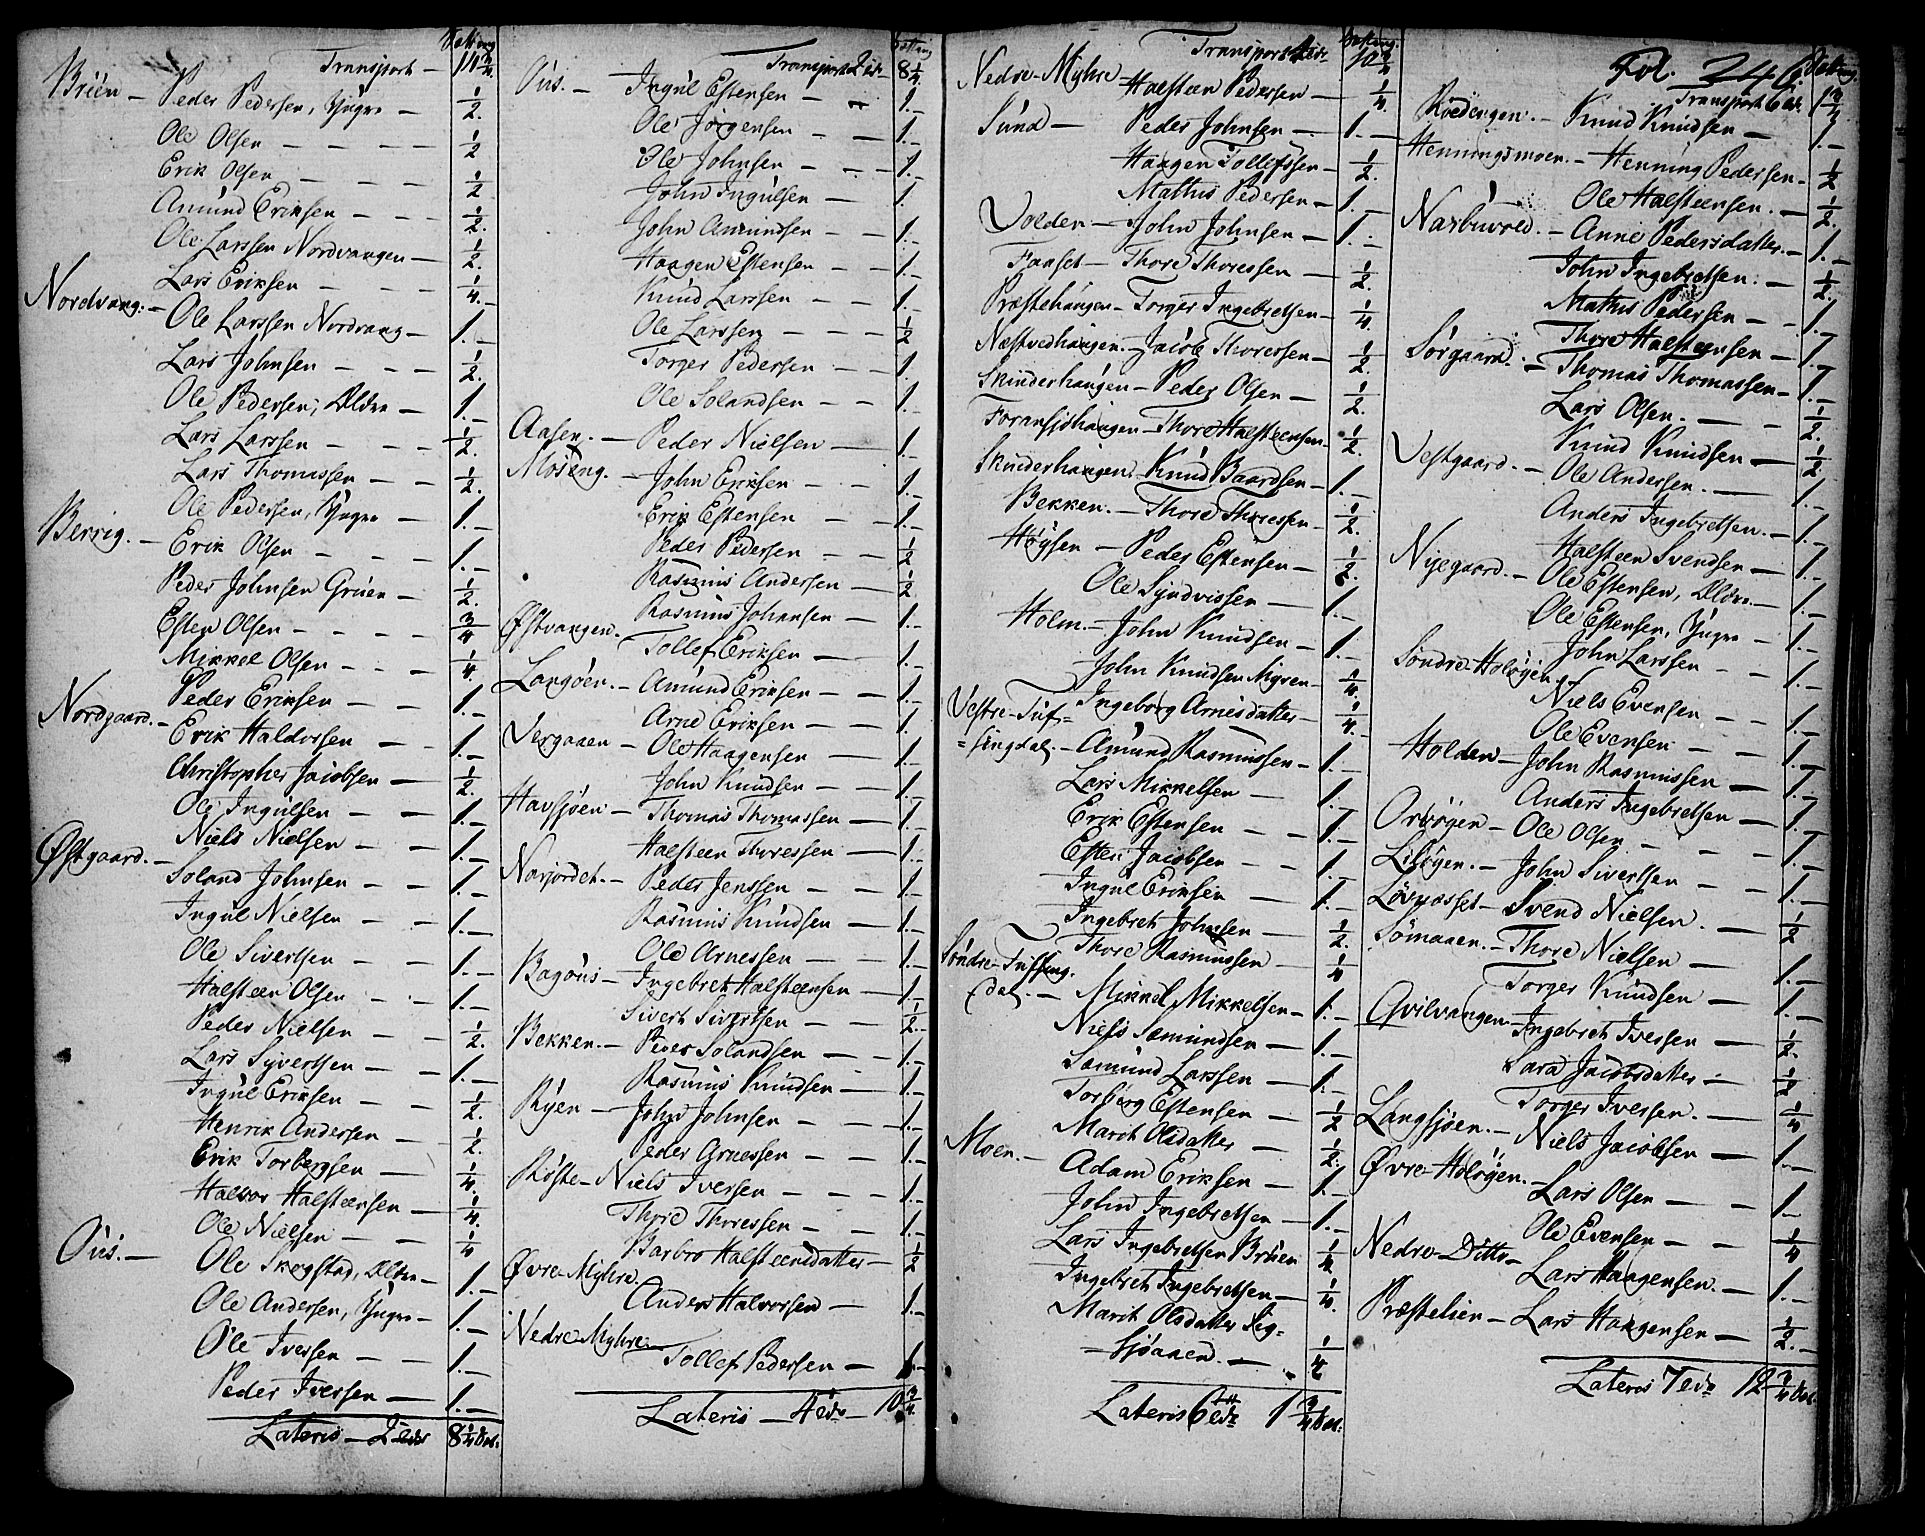 Transport — 11 3/4
Brüen — Peder Pedersen, Yngre — 1/2.
Ole Olsen — — — — 1/2
Erik Olsen — — — 1/2
Amünd Eriksen — — — 1/2.
Ole Larssen Nordvangen — 1/2.
Lars Eriksen — — — 1/4.
Nordvang. — Ole Larssen Nordvang — 1. —
Lars Johnsen — — — 1/2.
Ole Pedersen, Ældre — 1. —
Lars Larssen — — — 1/2.
Lars Thomassen — — — 1/2.
Ole Pedersen, Yngre — 1. —
Berrig. — Erik Olsen — — — 1. —
Peder Johnsen Grüen — 1/2.
Esten Olsen — — — — 3/4
Mikkel Olsen — — — 1/4.
Peder Eriksen — — — 1. —
Nordgaard. — Erik Haldorsen — — 1. —
Christopher Jacobsen — 1/2.
Ole Ingülsen — — 1. —
Østgaard. — Niels Nielsen — — 1. —
Soland Johnsen — — 1. —
Ingül Nielsen — — 1. —
Ole Sivertsen — — 1. —
Halsteen Olsen — — 1. —
Peder Nielsen — — 1/2.
Lars Syvertsen — — 1. —
Ingül Eriksen — — 1/2.
Henrik Andersen — — 1/2.
Erik Torbergsen — — 1/4.
Halvor Halsteensen — 1/4.
Ole Nielsen — — 1/4
Oüs. — Ole Skogstad, Ældre — 1. —
Ole Andersen, Yngre — 1. —
Ole Iversen — — 1. —
Peder Iversen — 1. —
Lateris — 2 8 1/4
Transport 2 — 8 1/4
Oüs. — Ingül Estensen — — 1. —
Ole Jörgensen — — 1. —
Ole Johnsen — — — 1. —
John Ingülsen — 1.
John Amündsen — — 1. —
Haagen Estensen — — 1. —
Knüd Larssen — — 1. —
Ole Larssen — — — 1/2
Torger Pedersen — — 1.
Ole Solandsen — — 1. —
Aasen. — Peder Nielsen — 1. —
Moseng. — John Eriksen — — 1. —
Erik Estensen — — 1. —
Peder Pedersen — — 1/2
Rasmüs Andersen — 1/2
Østvangen. Rasmüs Johansen — 1. —
Tollef Eriksen — 1. —
Langöen. — Amünd Eriksen — — 1. —
Arne Eriksen — — 1.
Vergaaen — Ole Haagensen — 1. —
John Knüdsen — — 1. —
Havsjöen — Thomas Thomassen — 1. —
Halsteen Thoressen — 1. —
Narjordet. — Peder Jenssen — — 1. —
Rasmüs Knüdsen — 1. —
Ole Arnessen — — 1. —
Bagöüs — Ingebret Halsteensen — 1. —
Sivert Sivertsen — — 1/2. —
Bekken. — Peder Solandsen — — 1. —
Rasmüs Knüdsen — 1. —
Ryen — John Johnsen — — 1. —
Peder Arnessen — — 1. —
Röste — Niels Iversen — — — 1. —
Thore Thoressen — — 1. —
Barbro Halsteensdatter — 1/2
Øvre-Myhre. Anders Halvorsen — 1. —
Nedre-Myhre. Tollef Pedersen — 1. —
Lateris — 4 — 10 3/4.
Transport 4 10 3/4
Nedre-Myhre — Halsteen Pedersen — 1/4
Sünd — Peder Johnsen — 1. —
Haagen Tollefssen — 1/2.
Mathis Pedersen — 1. —
Volden — John Johnsen — 1. —
Faaset — Thore Thoressen — 1/2.
Præstehaügen — Torger Ingebretsen — 1/4.
Næstvedhaügen. — Jacob Thoressen — 1/2
Skinderhaügen — Peder Olsen — 1/2.
Foransjöhaügen — Thore Halsteensen. 1/2.
Skinderhaügen. Knüd Baardsen — 1. —
Bekken. — Thore Thoressen — 1/2.
Höysen — Peder Estensen — 1/2.
Ole Syndvissen — 1. —
Holm. — John Knüdsen — 1. —
John Knüdsen Myren — 1/4.
Vestre-Tüf= Ingeborg Arnesdatter — 1/4.
=singdal. — Amünd Rasmüssen — 1. —
Lars Mikkelsen — 1. —
Erik Estensen — — 1. —
Esten Jacobsen — — 1. —
Ingül Eriksen — 1. —
Ingebret Johnsen — 1/2.
Söndre-Tüfsing= Thore Rasmüssen — 1/4
dal. — Mikkel Mikkelsen — 1. —
Niels Samündsen — 1. —
Samünd Larssen — 1. —
Torberg Estensen — 1/2
Marit Olsdatter — 1/2.
Moen. — Adam Eriksen — 1. —
John Ingebretsen — 1. —
Lars Ingebretsen Brüen 1/4
Ingebret Ingebretsen — 1/4.
Marit Olsdatter Sig=
=sjöaaen. — 1/4
Lateris 6 1 3/4
Fol. 246
Transport 6 1 3/4
Röedengen. — Knüd Knüdsen — 1. —
Henningsmoen. — Henning Pedersen — 1/2
Ole Halsteensen. — 1/2.
Narbüvold. — Anne Pedersdatter — 1. —
John Ingebretsen. — 1/2.
Mathis Pedersen — — 1. —
Thore Halsteensen — 1. —
Sörgaard. — Thomas Thomassen — 1. —
Lars Olsen. — — 1/2.
Knüd Knüdsen — 1/2
Vestgaard. — Ole Andersen. — 1. —
Anders Ingebretsen. — 1. —
Halsteen Svendsen — 1. —
Nyegaard. — Ole Estensen, Ældre. — 1. —
Ole Estensen, Yngre — 1. —
John Larssen — 1. —
Söndre-Holöyen. — Niels Evensen — — 1. —
Ole Evensen — — 1. —
Holden — John Rasmüssen — 1. —
Anders Ingebretsen — 1. —
Orvögen — Ole Olsen — — — 1. —
Lilöyen. — John Sivertsen — — 1. —
Lövaasset — Svend Nielsen. — 1/2
Sömaaen. — Thore Nielsen — 1. —
Torger Knüdsen — 1. —
Qvilvangen — Ingebret Iversen — 1/2.
Sara Jacobsdatter — 1/2
Torger Iversen. — 1/4
Langsjöen. — Niels Jacobsen — 1. —
Øvre-Holöyen. — Lars Olsen — — 1. —
Ole Evensen — — 1/4
Nedre-Ditto — Lars Haagensen. — 1. —
Præstelien — Lars Haagensen — 1/2. —
Lateris 7 12 3/4